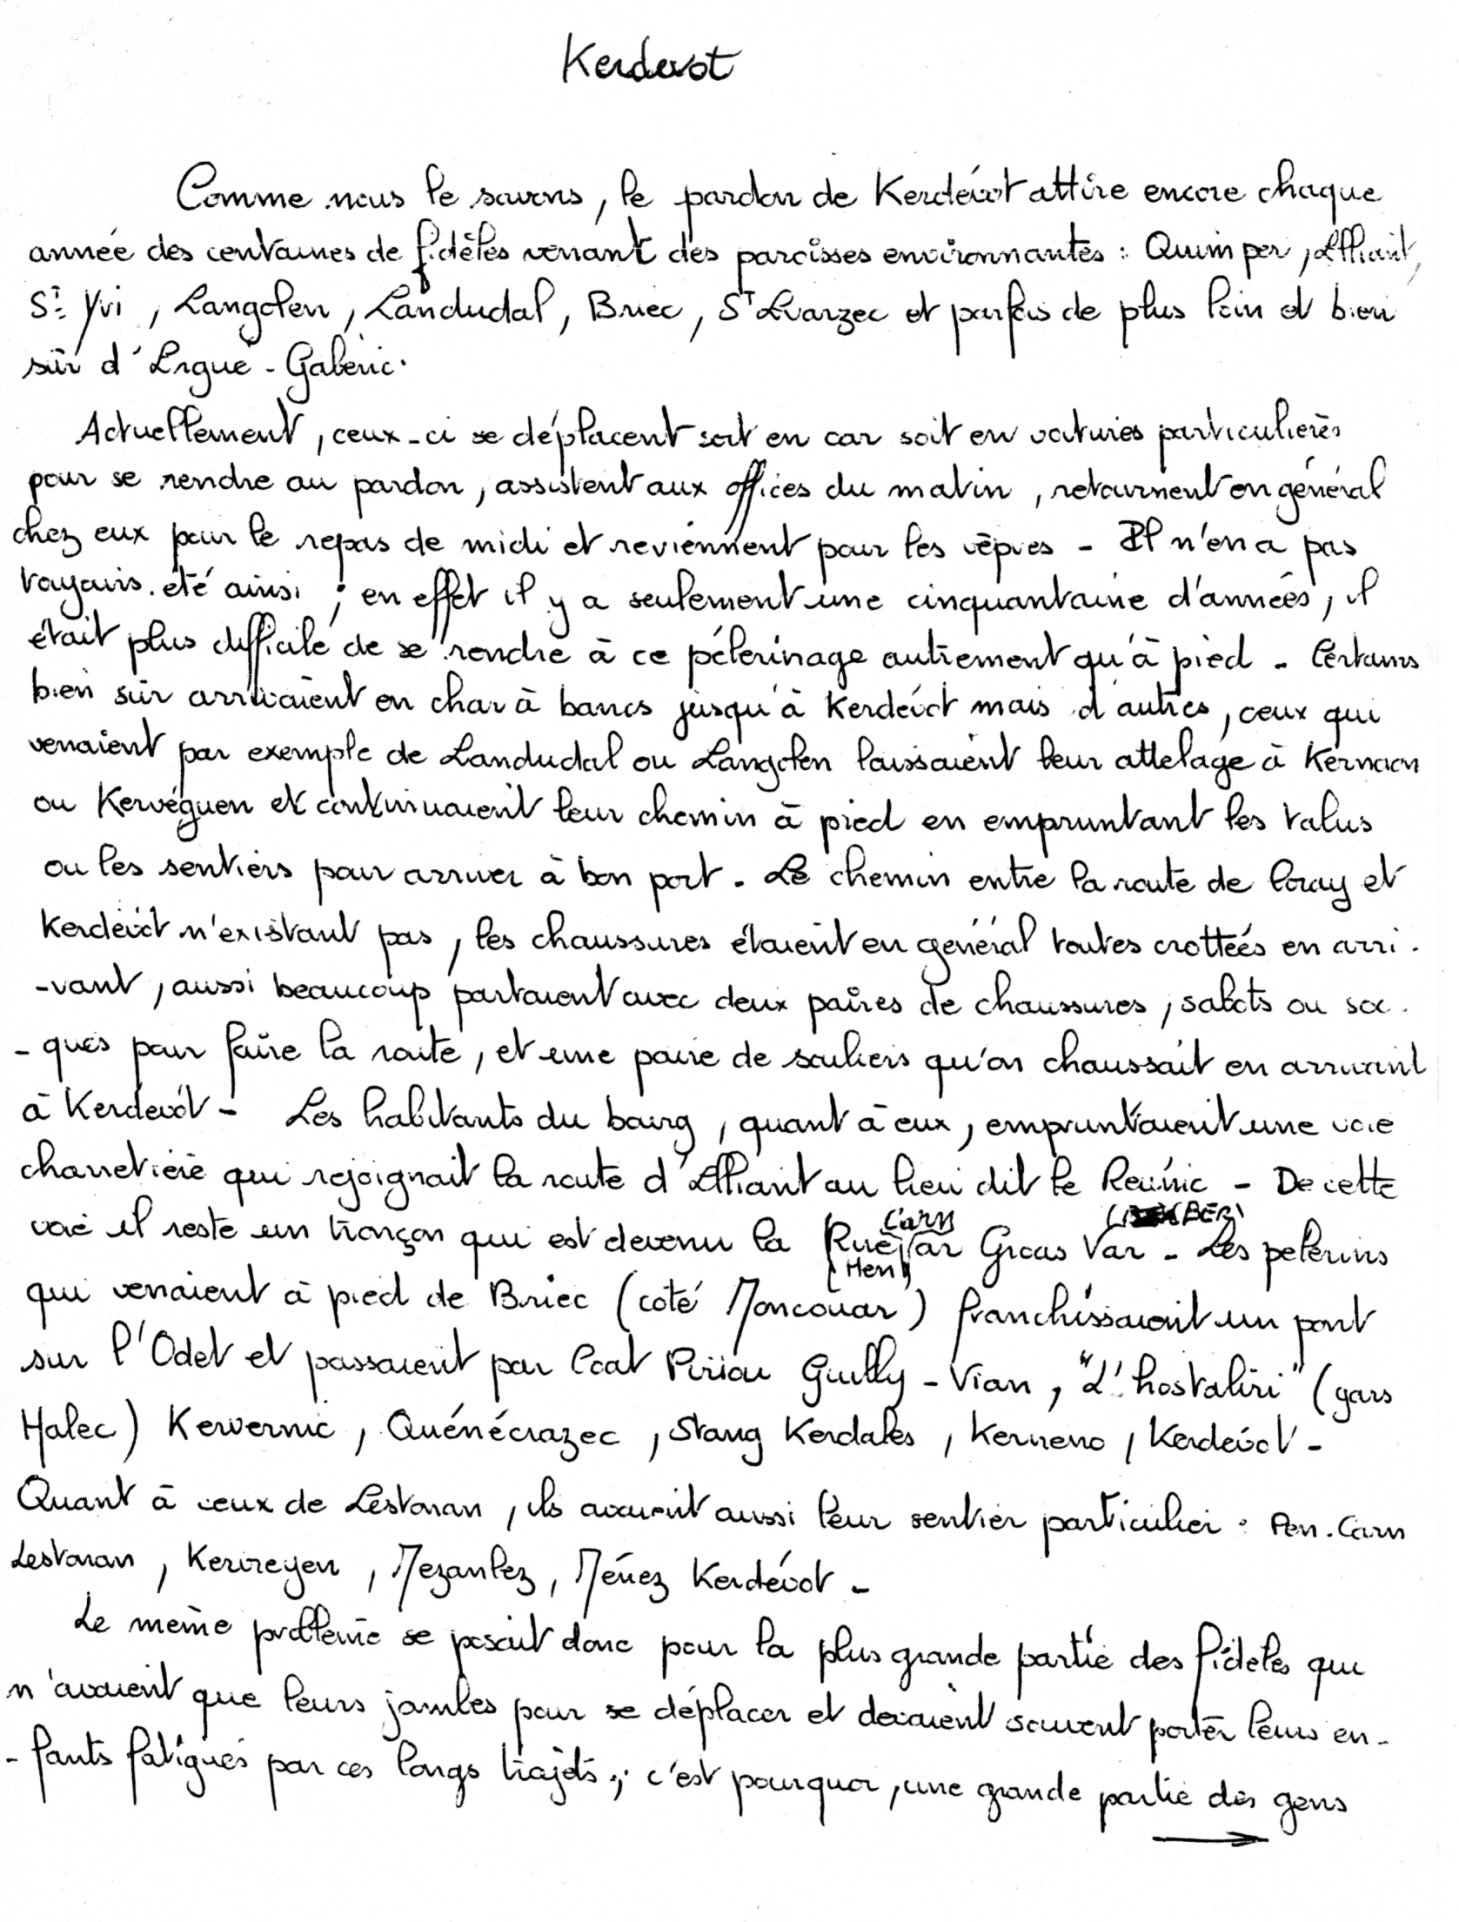 Kerdevot
Comme nous le savons, le pardon de Kerdévot attire encore chaque
année des centaines de fidèles venant des paroisses environnantes : Quimper, Elliant,
St Yvi, Langolen, Landudal, Briec, St Evarzec et parfois de plus loin et bien
sûr d'Ergué-Gabéric.
Actuellement, ceux-ci se déplacent soit en car soit en voitures particulières
pour se rendre au pardon, assistent aux offices du matin, retournent en général
chez eux pour le repas de midi et reviennent pour les vêpres - Il n'en a pas
toujours été ainsi ; en effet il y a seulement une cinquantaine d'années, il
était plus difficile de se rendre à ce pélerinage autrement qu'à pied - Certains
bien sûr arrivaient en char à bancs jusqu'à Kerdévot mais d'autres, ceux qui
venaient par exemple de Landudal ou Langolen laissaient leur attelage à Kernaon
ou Kervéguen et continuaient leur chemin à pied en empruntant les talus
ou les sentiers pour arriver à bon port. Le chemin entre la route de Coray et
Kerdévot n'existant pas, les chaussures étaient en général toutes crottées en arri-
-vant, aussi beaucoup partaient avec deux paires de chaussures, sabots ou soc-
-ques pour faire la route, et une paire de souliers qu'on chaussait en arrivant
à Kerdévot - Les habitants du bourg, quant à eux, empruntaient une voie
charretière qui rejoignait la route d'Elliant au lieu dit le Reunic - De cette
voie il reste un tronçon qui est devenu la Rue ar Groas Var - Les pélerins
Carn
(BER)
(Hent)
qui venaient à pied de Briec (coté Moncouar) franchissaient un pont
sur l'Odet et passaient par Coat Piriou Guilly-Vian, "L'hostaliri" (gars
Halec) Kervernic, Quénécrazec, Stang Kerdales, Kerneno, Kerdévot -
Quant à ceux de Lestonan, ils avaient aussi leur sentier particulier : Pen. Carn
Lestonan, Kerireyen, Mezanlez, Ménez Kerdévot -
Le même problème se posait donc pour la plus grande partie des fidèles qui
n'avaient que leurs jambes pour se déplacer et devaient souvent porter leurs en-
-fants fatigués par ces longs trajets ; c'est pourquoi, une grande partie des gens